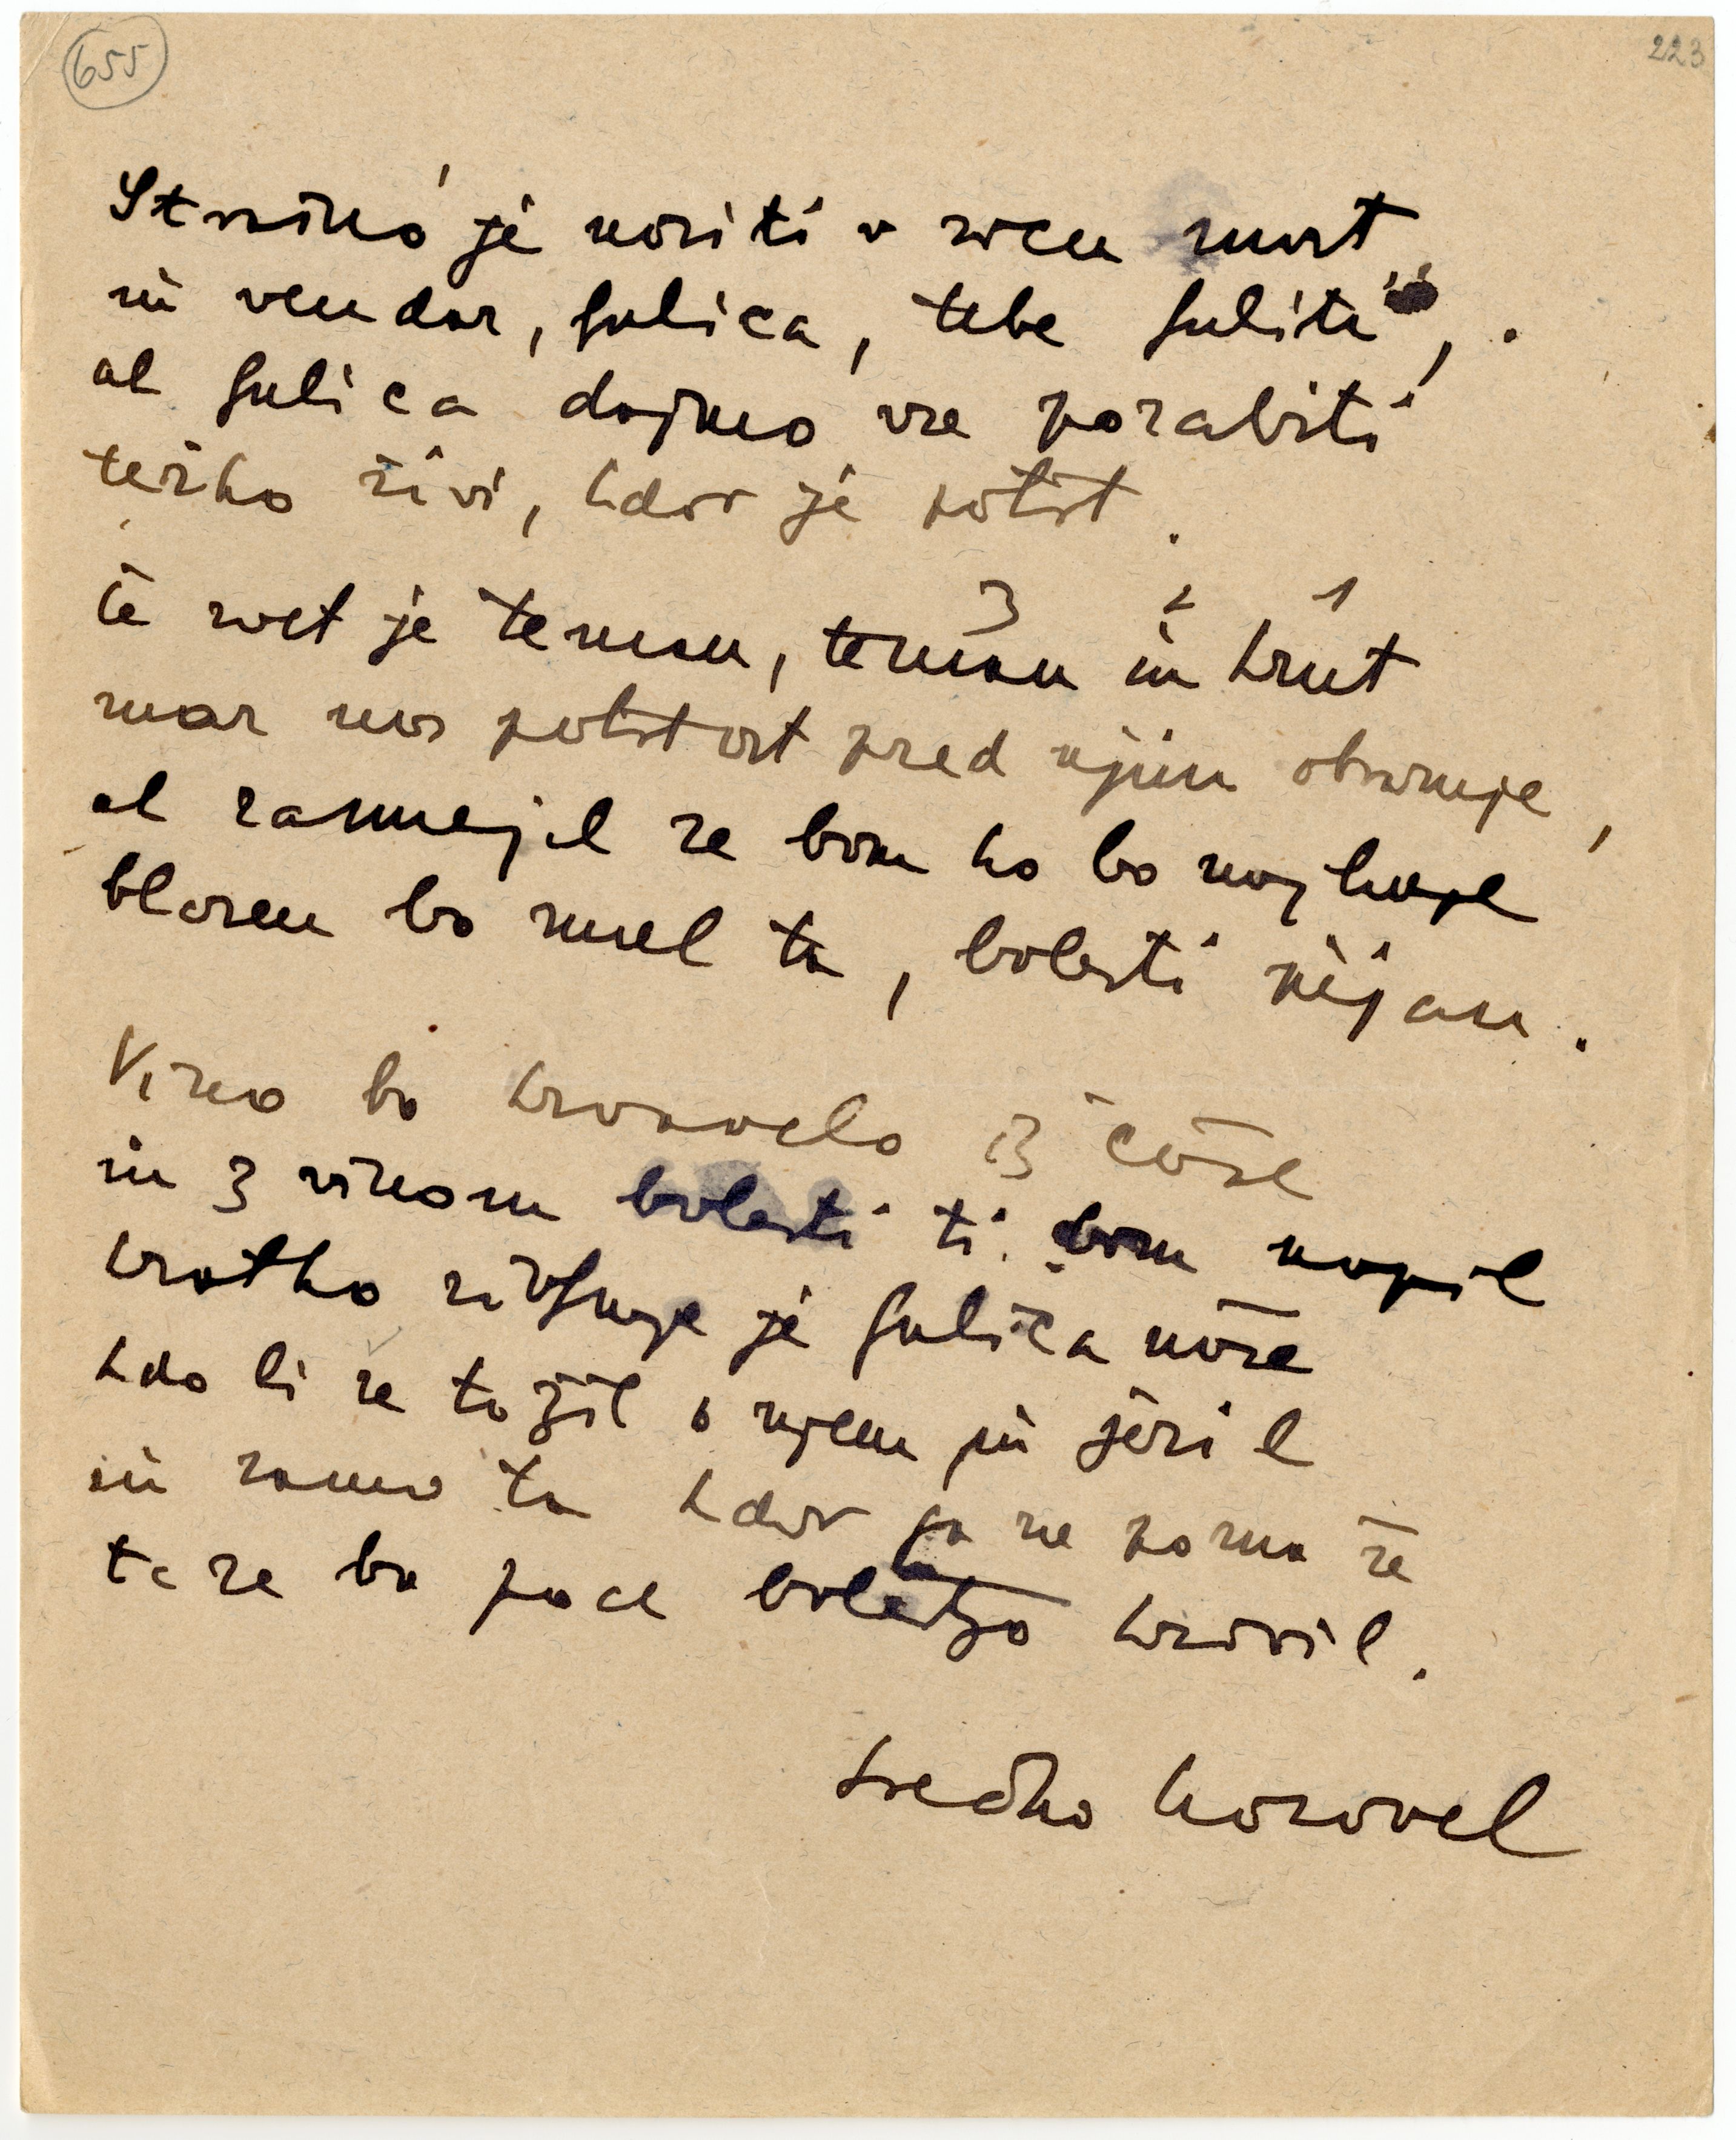 655
223
Strašnó je nositi v srcu smrt
in vendar, ljubica, tebe ljubiti,
al ljubica dajmo vse pozabiti
težko živi, kdor je potrt.
Če svet je teman, teman in krut
3 2 1
mar nas potrtost pred njim obvaruje,
al zasmejal se bom ko bo najhuje
blazen bo smeh ta, bolesti pijan.
Vino bo krvavelo iz čaše
in z vinom bolesti ti bom napil
kratko življenje je ljubica naše
kdo bi se tožil o njem in jezil
in samo ta kdor ga ne pozna še
ta se bo pač bolestjo
Srečko Kosovel